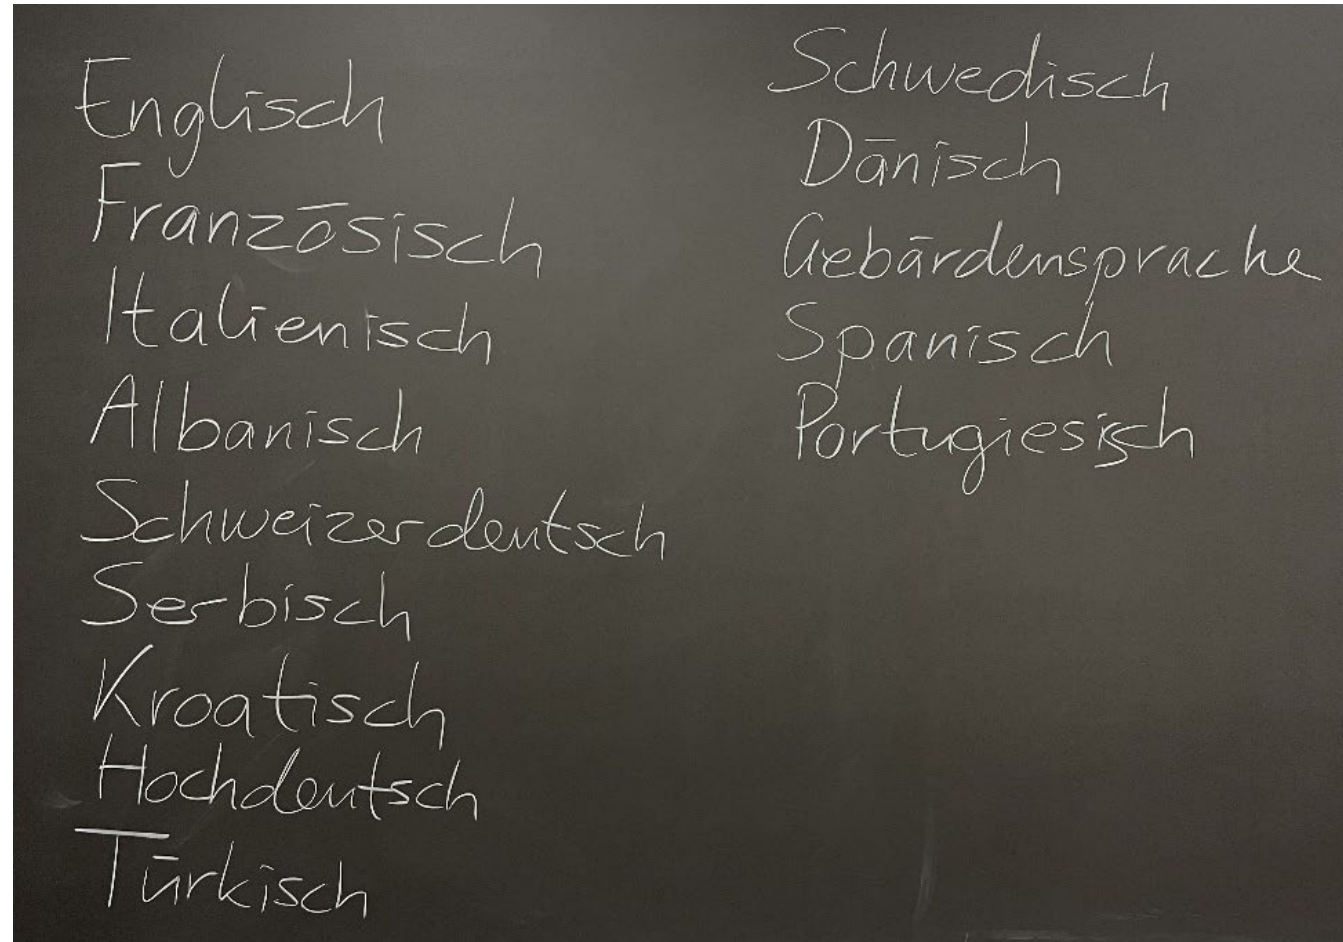 Englisch
Französisch
Italienisch
Albanisch
Schweizerdeutsch
Serbisch
Kroatisch
Hochdeutsch
Türkisch
Schwedisch
Dänisch
Gebärdensprache
Spanisch
Portugiesisch